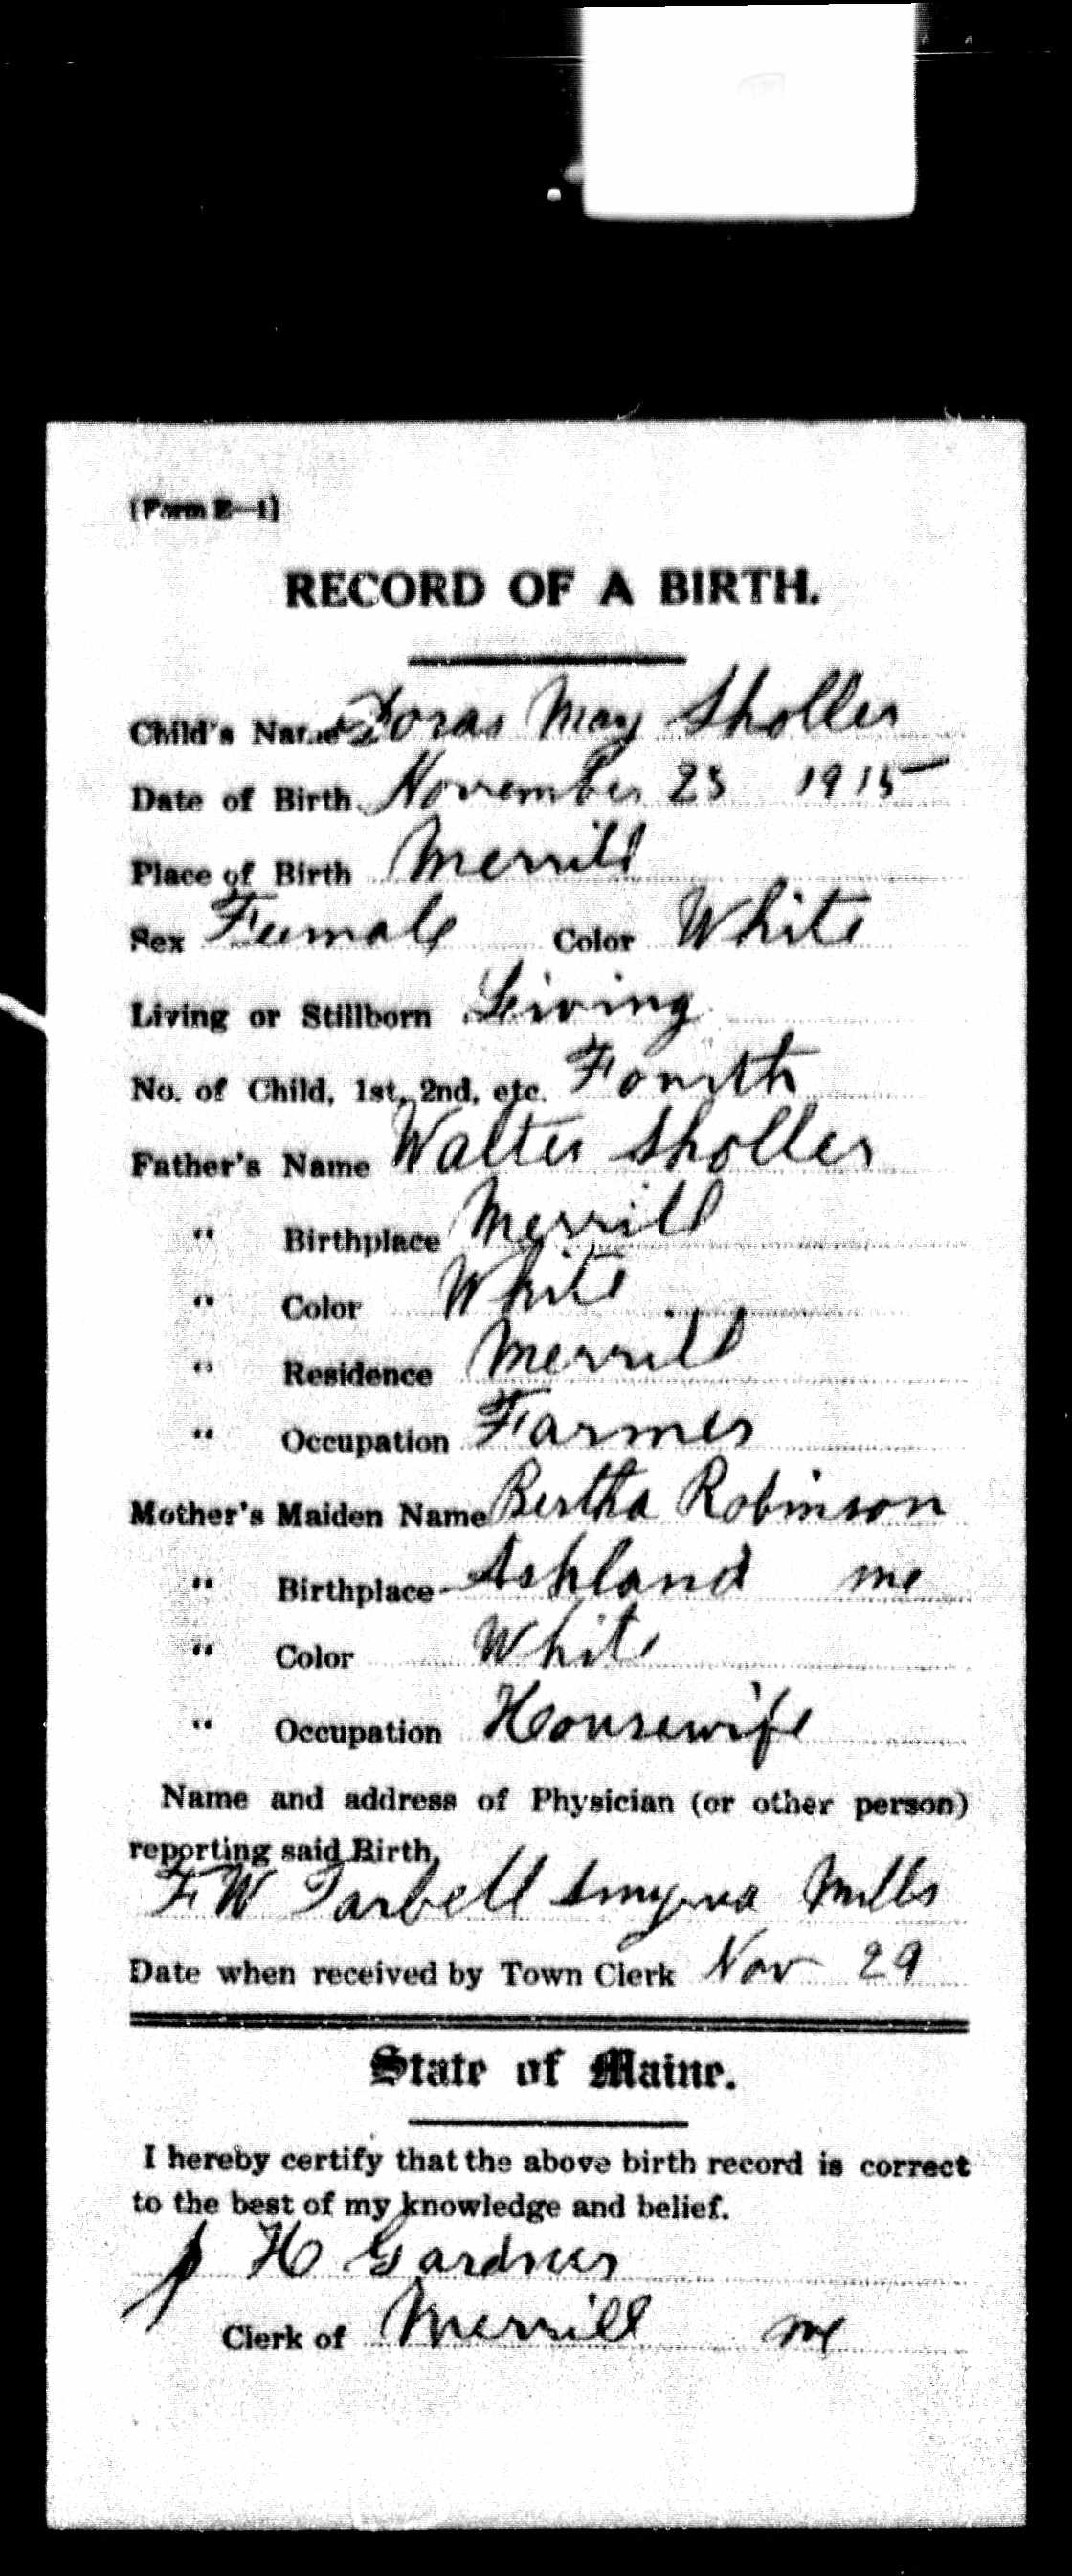 (Form B—1)
RECORD OF A BIRTH.
Child's Name Doras May Sholler
Date of Birth November 23 1915
Place of Birth Merrill
Sex Female Color White
Living or Stillborn Living
No. of Child, 1st, 2nd, etc. Fourth
Father's Name Walter Sholler
" Birthplace Merrill
" Color White
" Residence Merrill
" Occupation Farmer
Mother's Maiden Name Bertha Robinson
" Birthplace Ashland Me
" Color White
" Occupation Housewife
Name and address of Physician (or other person)
reporting said Birth,
F W Tarbell Smyrna Mills
Date when received by Town Clerk Nov 29
State of Maine.
I hereby certify that the above birth record is correct
to the best of my knowledge and belief.
J H Gardner
Clerk of Merrill Me